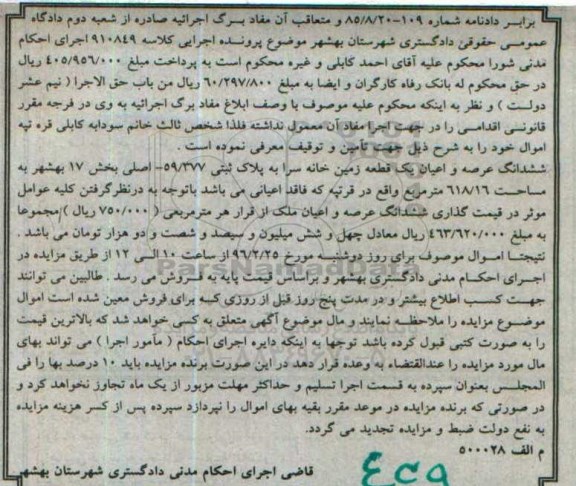 برابر دادنامه شماره ۱۰۹-۸۵/۸/۲۰ و متعاقب آن مفاد برگ اجرائیه صادره از شعبه دوم دادگاه
عمومی حقوقی دادگستری شهرستان بهشهر موضوع پرونده اجرایی کلاسه ۹۱۰۸۴۹ اجرای احکام
مدنی شورا محکوم علیه آقای احمد کابلی و غیره محکوم است به پرداخت مبلغ ۴۰۵/۹۵۶/۰۰۰ ریال
در حق محکوم له بانک رفاه کارگران و ایضا به مبلغ ۶۰/۲۹۷/۸۰۰ ریال من باب حق الاجرا ( نیم عشر
دولت ) و نظر به اینکه محکوم علیه موصوف با وصف ابلاغ مفاد برگ اجرائیه به وی در فرجه مقرر
قانونی اقدامی را در جهت اجرا مفاد آن معمول نداشته فلذا شخص ثالث خانم سودابه کابلی قره تپه
اموال خود را به شرح ذیل جهت تأمین و توقیف معرفی نموده است .
ششدانگ عرصه و اعیان یک قطعه زمین خانه سرا به پلاک ثبتی ۵۹/۳۷۷- اصلی بخش ۱۷ بهشهر به
مساحت ۶۱۸/۱۶ مترمربع واقع در قرتپه که فاقد اعیانی می باشد باتوجه به درنظرگرفتن کلیه عوامل
موثر در قیمت گذاری ششدانگ عرصه و اعیان ملک از قرار هر مترمربعی ( ۷۵۰/۰۰۰ ریال ) مجموعا
به مبلغ ۴۶۳/۶۲۰/۰۰۰ ریال معادل چهل و شش میلیون و سیصد و شصت و دو هزار تومان می باشد .
نتیجتا اموال موصوف برای روز دوشنبه مورخ ۹۶/۲/۲۵ از ساعت ۱۰ الی ۱۲ از طریق مزایده در
اجرای احکام مدنی دادگستری بهشهر و براساس قیمت پایه به فروش می رسد . طالبین می توانند
جهت کسب اطلاع بیشتر و در مدت پنج روز قبل از روزی که برای فروش معین شده است اموال
موضوع مزایده را ملاحظه نمایند و مال موضوع آگهی متعلق به کسی خواهد شد که بالاترین قیمت
را به صورت کتبی قبول کرده باشد توجها به اینکه دایره اجرای احکام ( مأمور اجرا ) می تواند بهای
مال مورد مزایده را عندالقتضاء به وعده قرار دهد در این صورت برنده مزایده باید ۱۰ درصد بها را فی
المجلس بعنوان سپرده به قسمت اجرا تسلیم و حداکثر مهلت مزبور از یک ماه تجاوز نخواهد کرد و
در صورتی که برنده مزایده در موعد مقرر بقیه بهای اموال را نپردازد سپرده پس از کسر هزینه مزایده
به نفع دولت ضبط و مزایده تجدید می گردد.
م الف ۵۰۰۰۲۸
قاضی اجرای احکام مدنی دادگستری شهرستان بهشهر
۴۶۹
ParsNamadData